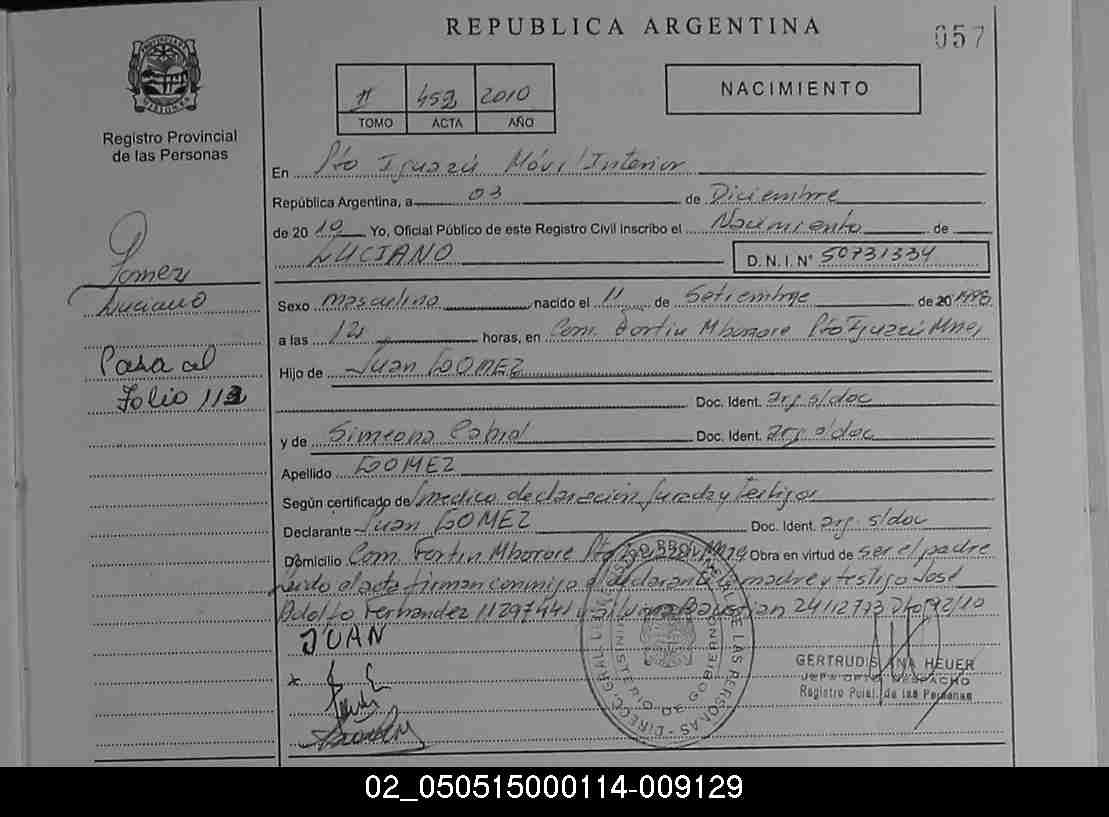 REPUBLICA ARGENTINA
057
PROVINCIA DE MISIONES
Registro Provincial
de las Personas
II 459 2010
TOMO ACTA AÑO
NACIMIENTO
En Pto Iguazú Móvil Interior
República Argentina, a 03 de Diciembre
de 2010 Yo, Oficial Público de este Registro Civil Inscribo el Nacimiento de
LUCIANO D.N.I. N° 50731334
Gomez
Luciano
Pasa al
Folio 113
Sexo masculino nacido el 11 de Setiembre de 20 1998
a las 12 horas, en Com. Fortin Mborore Pto Iguazú Mnes
Hijo de Juan GOMEZ
Doc. Ident. arg s/doc
y de Simeona Cabral Doc. Ident. arg s/doc
Apellido GOMEZ
Según certificado de medico declaración Jurada y testigos
Declarante Juan GOMEZ Doc. Ident. arg. s/doc
Domicilio Com. Fortin Mborore Pto Iguazú Mnes Obra en virtud de ser el padre
Leido el acta firman conmigo el declarante la madre y testigo José
Adolfo Fernandez 11297441 y 24112773 Dto 92/10
JUAN
GERTRUDIS ANA HEUER
JEFA DPTO DESPACHO
Registro Pcial. de las Personas
DIRECC. GRAL. DEL REGISTRO PROVINCIAL DE LAS PERSONAS
MINISTERIO DE GOBIERNO
02_050515000114-009129